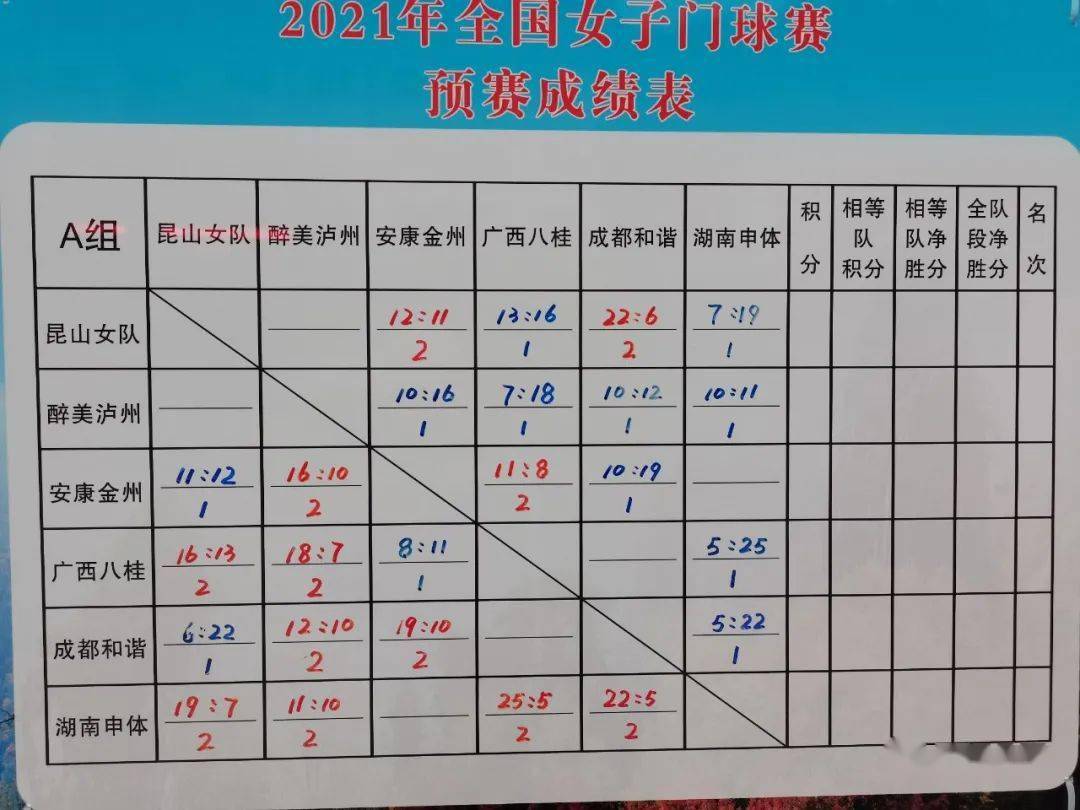 2021年全国女子门球赛
预赛成绩表
A组 昆山女队 醉美泸州 安康金州 广西八桂 成都和谐 湖南申体 积分 相等队积分 相等队净胜分 全队段净胜分 名次
昆山女队 12:11 13:16 22:6 7:19
2 1 2 1
醉美泸州 10:16 7:18 10:12 10:11
1 1 1 1
安康金州 11:12 16:10 11:8 10:19
1 2 2 1
广西八桂 16:13 18:7 8:11 5:25
2 2 1 1
成都和谐 6:22 12:10 19:10 5:22
1 2 2 1
湖南申体 19:7 11:10 25:5 22:5
2 2 2 2